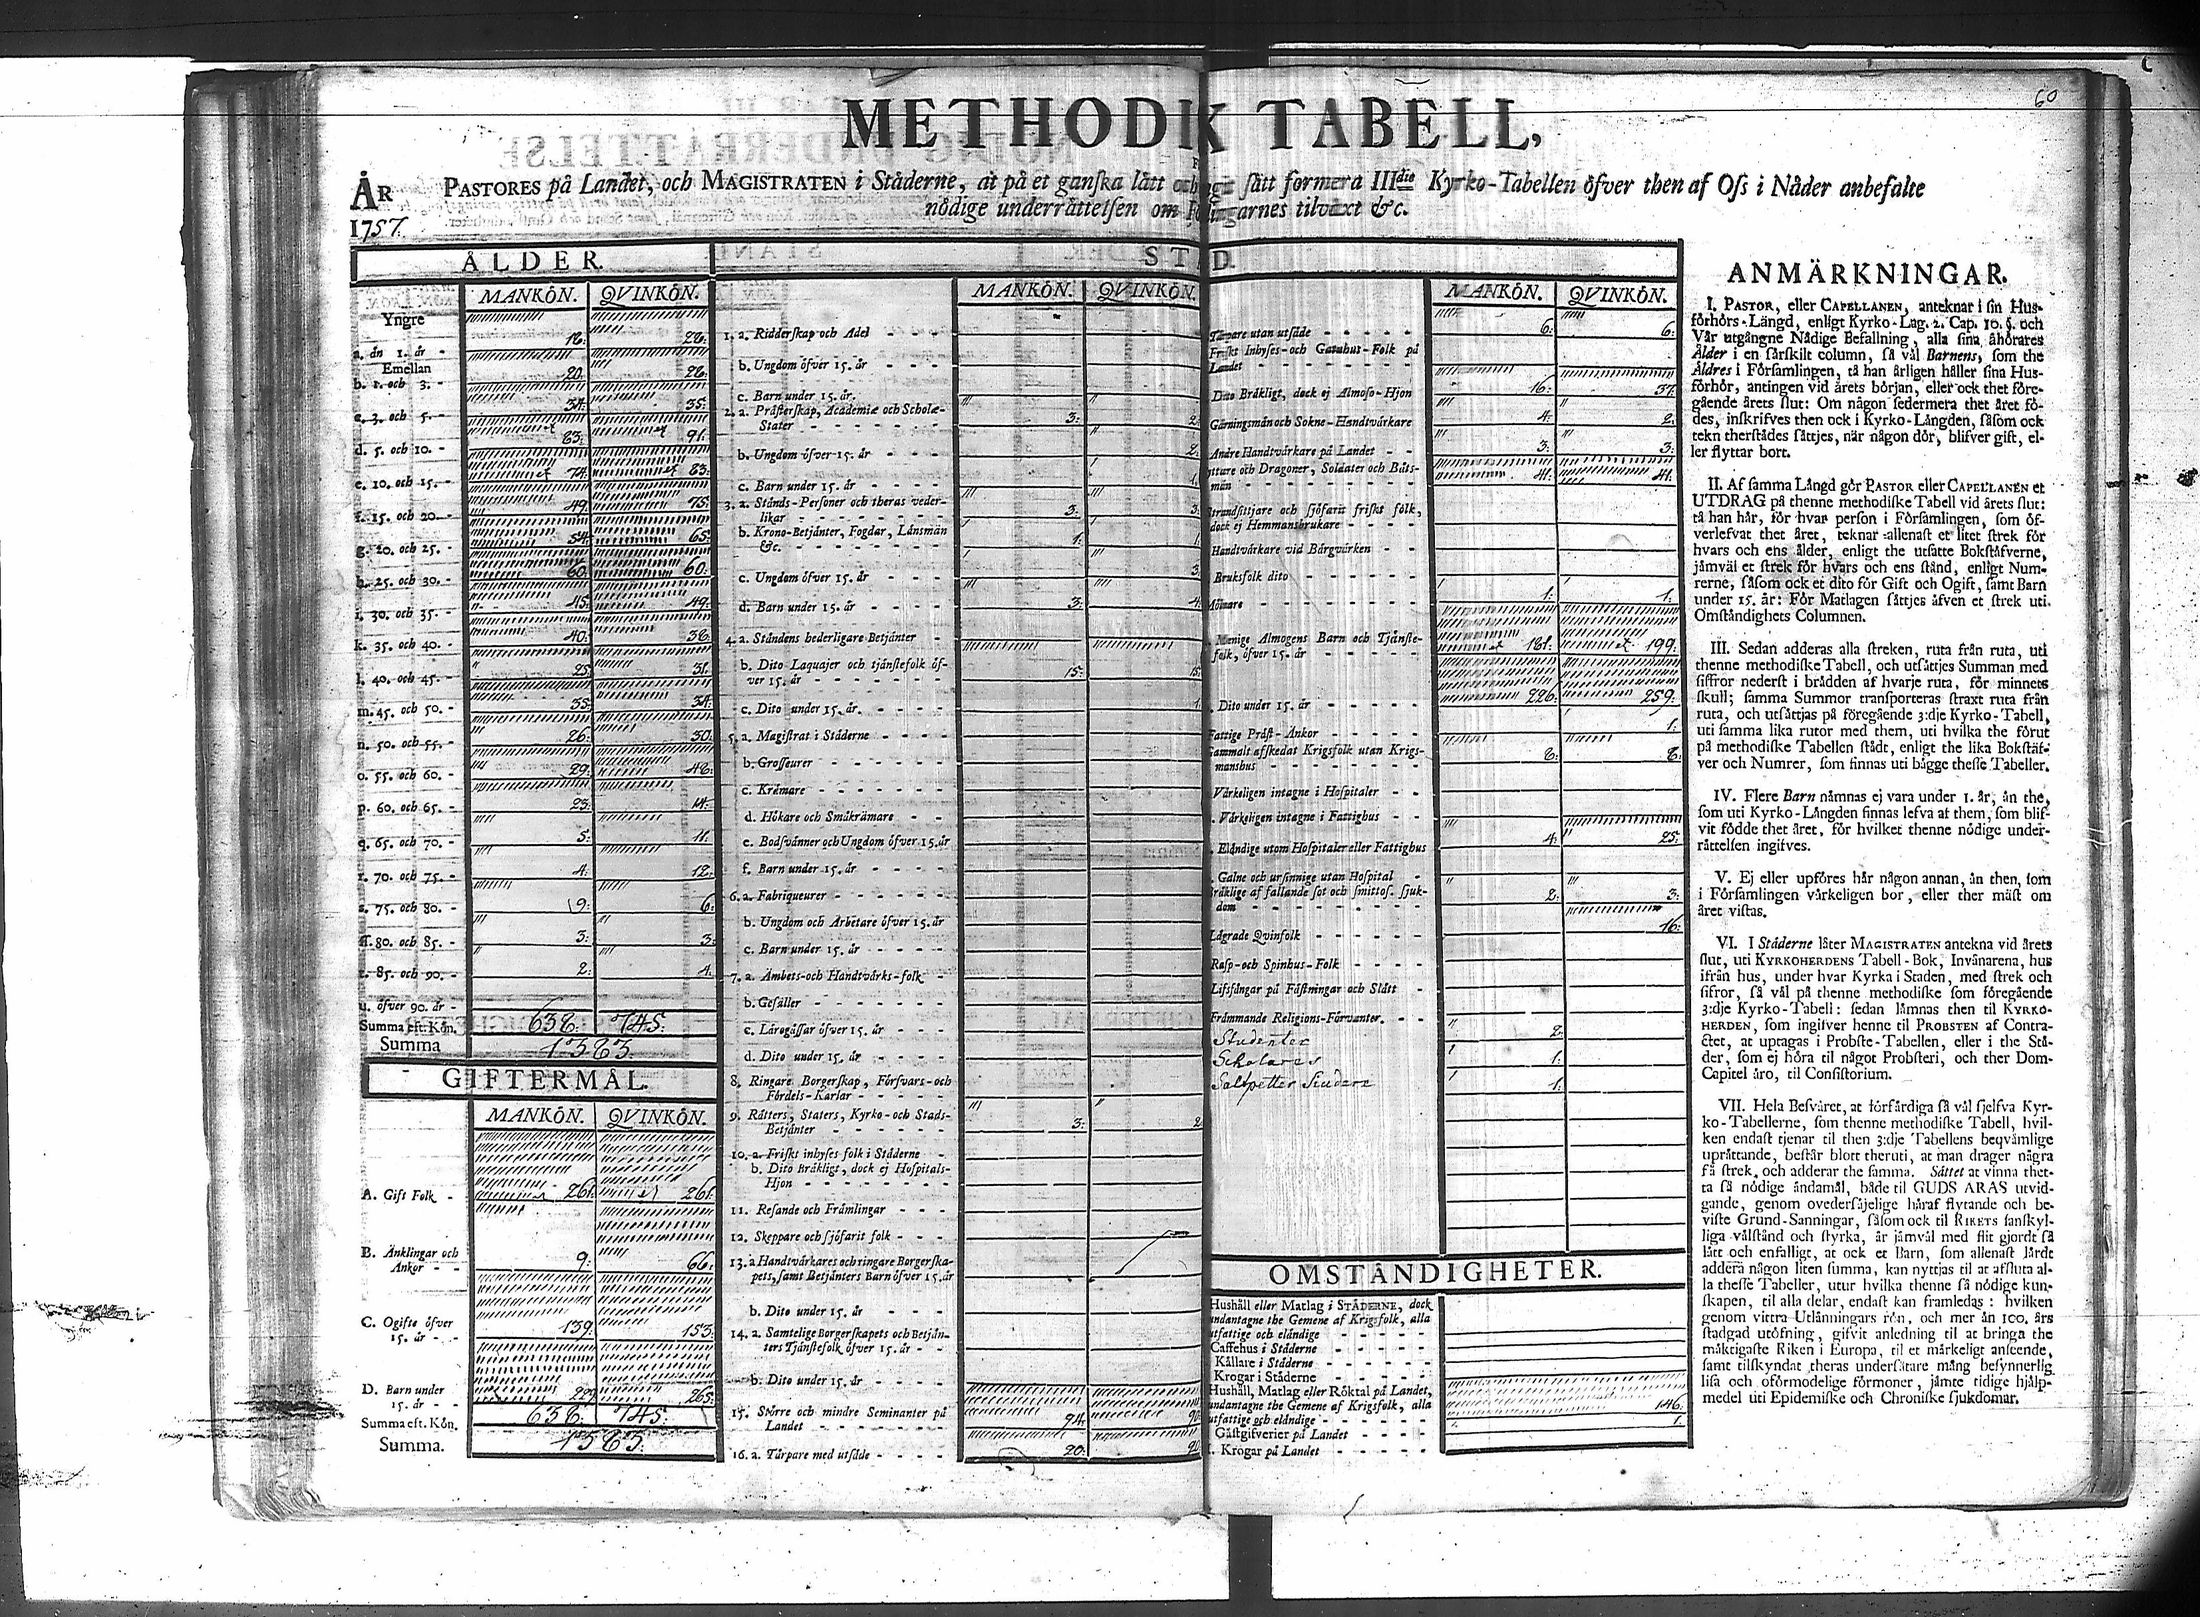 60
METHODIK TABELL,
ÅR 1757.
PASTORES på Landet, och MAGISTRATEN i Städerne, at på et ganska lätt sätt formera IIIdie Kyrko-Tabellen öfver then af Oss i Nåder anbefalte
nödige underrättelsen om tilväxt &c.
ÅLDER.
MANKÖN. QVINKÖN.
Yngre
a. än 1. år - 18: 28:
Emellan
b. 1. och 3. - 20. 26:
c. 3. och 5. - 34: 35:
d. 5. och 10. - 83: 91:
e. 10. och 15. - 74: 83:
f. 15. och 20. - 49: 75:
g. 20. och 25. - 54: 65:
h. 25. och 30. - 60: 60:
i. 30. och 35. - 45: 49:
k. 35. och 40. - 40: 38:
l. 40. och 45. - 25: 31.
m. 45. och 50. - 35: 34:
n. 50. och 55. - 26: 30:
o. 55. och 60. - 29: 48:
p. 60. och 65. - 23: 14:
q. 65. och 70. - 5: 11:
r. 70. och 75. - 4. 12:
s. 75. och 80. - 9: 6:
ff. 80. och 85. - 3: 3:
t. 85. och 90. - 2: 4:
u. öfver 90. år -
Summa eft. Kön. 638: 745:
Summa 1383:
GIFTERMÅL.
MANKÖN. QVINKÖN.
A. Gift Folk - 261: 261:
B. Änklingar och
Änkor - - 9: 66:
C. Ogifte öfver
15. år - - 139: 153:
D. Barn under
15. år - - 229 265:
Summa eft. Kön. 638: 745:
Summa. 1383:
MANKÖN. QVINKÖN.
1. a. Ridderskap och Adel - - -
b. Ungdom öfver 15. år - - - -
c. Barn under 15. år.
2. a. Prästerskap, Academiæ och Scholæ-
Stater - - - - - - - 3: 2:
b. Ungdom öfver 15. år - - - - 2:
c. Barn under 15. år - - - - 1.
3. a. Stånds-Personer och theras veder-
likar - - - - - - - - 3: 3:
b. Krono-Betjänter, Fogdar, Länsmän
&c. - - - - - - - - 1: 1:
c. Ungdom öfver 15. år - - - - 3:
d. Barn under 15. år - - - - 3: 4:
4. a. Ståndens hederligare Betjänter -
b. Dito Laquajer och tjänstefolk öf-
ver 15. år - - - - - - - 15: 15:
c. Dito under 15. år. - - - - 1:
5. a. Magistrat i Städerne - - - -
b. Grosseurer - - - - - - -
c. Krämare - - - - - - -
d. Hökare och Småkrämare - - -
e. Bodsvänner och Ungdom öfver 15. år
f. Barn under 15. år - - - -
6. a. Fabriqueurer - - - - - -
b. Ungdom och Arbetare öfver 15. år
c. Barn under 15. år - - - -
7. a. Ämbets-och Handtvärks-folk -
b. Gesäller - - - - - - -
c. Läregåssar öfver 15. år - - -
d. Dito under 15. år - - - -
8. Ringare Borgerskap, Försvars-och
Fördels-Karlar - - - - -
9. Rätters, Staters, Kyrko-och Stads-
Betjänter - - - - - - 3: 2
10. a. Friskt inhyses folk i Städerne -
b. Dito Bräkligt, dock ej Hospitals-
Hjon - - - - - - -
11. Resande och Främlingar - - -
12. Skeppare och sjöfarit folk - - -
13. a Handtvärkares och ringare Borgerska-
pets, samt Betjänters Barn öfver 15. år
b. Dito under 15. år - - - -
14. a. Samtelige Borgerskapets och Betjän-
ters Tjänstefolk öfver 15. år - -
b. Dito under 15. år - - - -
15. Större och mindre Seminanter på
Landet - - - - - - - 94: 90:
16. a. Tårpare med utsäde - - - - 20:
MANKÖN. QVINKÖN.
Tårpare utan utsäde - - - - - 6: 6:
Friskt Inhyses-och Gatuhus-Folk på
Landet - - - - - - - 16: 37:
Dito Bräkligt, dock ej Almoso-Hjon
Gärningsmän och Sokne-Handtvärkare 4: 2:
Andre Handtvärkare på Landet - - 3: 3:
Ryttare och Dragoner, Soldater och Båts-
män - - - - - - - - 41: 41:
Strandsittjare och sjöfarit friskt folk,
dock ej Hemmansbrukare - - - -
Handtvärkare vid Bärgvärken - -
Bruksfolk dito - - - - - -
Mölnare - - - - - - - 1: 1:
Menige Almogens Barn och Tjänste-
folk, öfver 15. år - - - - - 181: 199:
Dito under 15. år - - - - - 226: 259:
Fattige Präst-Änkor - - - - - 1:
Gammalt afskedat Krigsfolk utan Krigs-
manshus - - - - - - - 8: 8:
Värkeligen intagne i Hospitaler - -
Värkeligen intagne i Fattighus - -
Eländige utom Hospitaler eller Fattighus 4: 25:
Galne och ursinnige utan Hospital -
Bräklige af fallande sot och smittos. sjuk-
dom - - - - - - - - 2: 3:
Lägrade Qvinfolk - - - - - 16:
Rasp-och Spinhus-Folk - - - -
Lifsfångar på Fästningar och Slått -
Främmande Religions-Förvanter. - -
Studenter 2:
Scholares 1:
Salpetter Siudare 1:
OMSTÄNDIGHETER.
Hushåll eller Matlag i STÄDERNE, dock
undantagne the Gemene af Krigsfolk, alla
utfattige och eländige - - - - -
Caffehus i Städerne - - - - -
Källare i Städerne - - - - -
Krogar i Städerne - - - - -
Hushåll, Matlag eller Röktal på Landet,
undantagne the Gemene af Krigsfolk, alla
utfattige och eländige - - - - - 146:
Gästgifverier på Landet - - - - 1.
Krogar på Landet - - - - -
ANMÄRKNINGAR.
I. PASTOR, eller CAPELLANEN, anteknar i sin Hus-
förhörs-Längd, enligt Kyrko-Lag. 2. Cap. 10. §. och
Vår utgångne Nådige Befallning, alla sina åhörares
Ålder i en särskilt column, så väl Barnens, som the
Äldres i Församlingen, tå han årligen håller sina Hus-
förhör, antingen vid årets början, eller ock thet före-
gående årets slut: Om någon sedermera thet året fö-
des, inskrifves then ock i Kyrko-Längden, såsom ock
tekn therstädes sättjes, när någon dör, blifver gift, el-
ler flyttar bort.
II. Af samma Längd gör PASTOR eller CAPELLANEN et
UTDRAG på thenne methodiske Tabell vid årets slut:
tå han här, för hvar person i Församlingen, som öf-
verlefvat thet året, teknar allenast et litet strek för
hvars och ens ålder, enligt the utsatte Bokstäfverne,
jämväl et strek för hvars och ens stånd, enligt Num-
rerne, såsom ock et dito för Gift och Ogift, samt Barn
under 15. år: För Matlagen sättjes äfven et strek uti
Omständighets Columnen.
III. Sedan adderas alla streken, ruta från ruta, uti
thenne methodiske Tabell, och utsättjes Summan med
siffror nederst i brädden af hvarje ruta, för minnets
skull; samma Summor transporteras straxt ruta från
ruta, och utsättjas på föregående 3:dje Kyrko-Tabell,
uti samma lika rutor med them, uti hvilka the förut
på methodiske Tabellen stådt, enligt the lika Bokstäf-
ver och Numrer, som finnas uti bägge thesse Tabeller.
IV. Flere Barn nämnas ej vara under 1. år, än the,
som uti Kyrko-Längden finnas lefva af them, som blif-
vit födde thet året, för hvilket thenne nödige under-
rättelsen ingifves.
V. Ej eller upföres här någon annan, än then, som
i Församlingen värkeligen bor, eller ther mäst om
året vistas.
VI. I Städerne låter MAGISTRATEN antekna vid årets
slut, uti KYRKOHERDENS Tabell-Bok, Invånarena, hus
ifrån hus, under hvar Kyrka i Staden, med strek och
sifror, så väl på thenne methodiske som föregående
3:dje Kyrko-Tabell: sedan lämnas then til KYRKO-
HERDEN, som ingifver henne til PROBSTEN af Contra-
ctet, at uptagas i Probste-Tabellen, eller i the Stä-
der, som ej höra til något Probsteri, och ther Dom-
Capitel äro, til Consistorium.
VII. Hela Besväret, at förfärdiga så väl sjelfva Kyr-
ko-Tabellerne, som thenne methodiske Tabell, hvil-
ken endast tjenar til then 3:dje Tabellens beqvämlige
uprättande, består blott theruti, at man drager några
få strek, och adderar the samma. Sättet at vinna thet-
ta så nödige ändamål, både til GUDS ÄRAS utvid-
gande, genom ovedersäjelige häraf flytande och be-
viste Grund-Sanningar, såsom ock til RIKETS sanskyl-
liga välstånd och styrka, är jämväl med flit gjordt så
lätt och enfalligt, at ock et Barn, som allenast lärdt
addera någon liten summa, kan nyttjas til at afsluta al-
la thesse Tabeller, utur hvilka thenne så nödige kun-
skapen, til alla delar, endast kan framledas: hvilken
genom vittra Utlänningars rön, och mer än 100. års
stadgad utöfning, gifvit anledning til at bringa the
mäktigaste Riken i Europa, til et märkeligt anseende,
samt tilskyndat theras undersåtare mång besynnerlig
lisa och oförmodelige förmoner, jämte tidige hjälp-
medel uti Epidemiske och Chroniske sjukdomar.